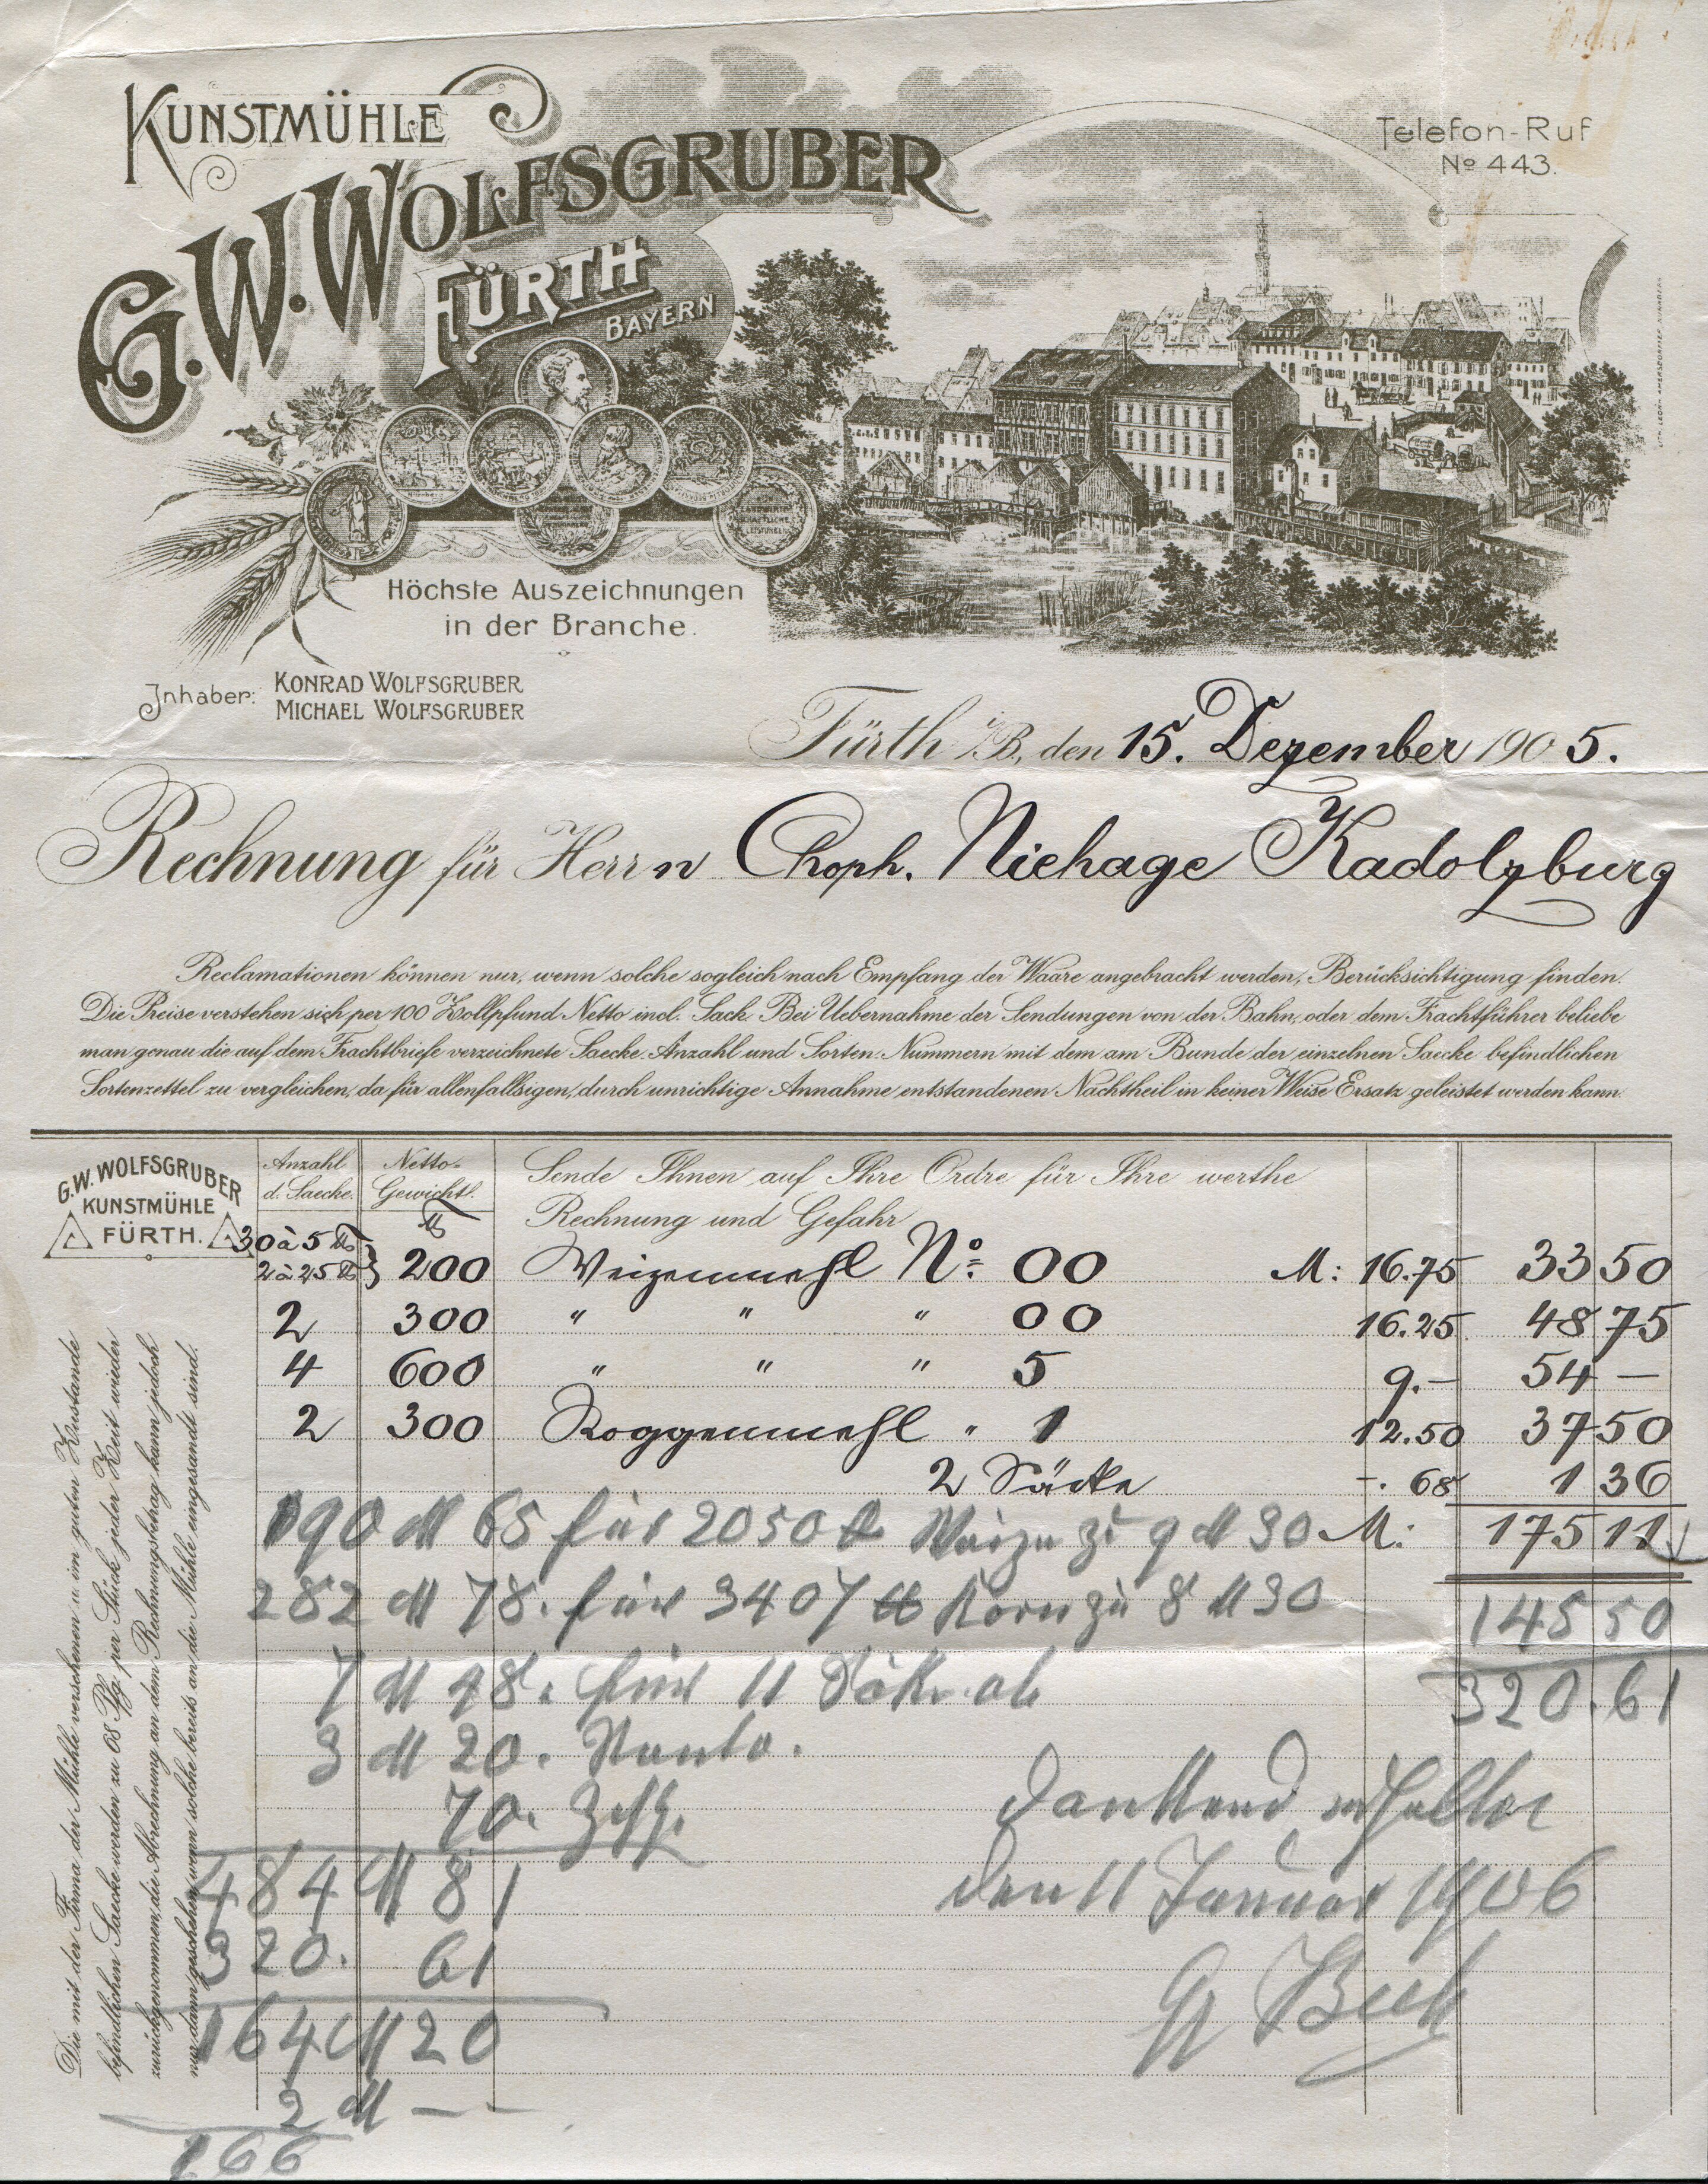 KUNSTMÜHLE
G. W. WOLFSGRUBER
FÜRTH
BAYERN
Telefon-Ruf
No 443.
LANDWIRTH
SCHAFTLICHE
LEISTUNGEN
Höchste Auszeichnungen
in der Branche.
Inhaber: KONRAD WOLFSGRUBER
MICHAEL WOLFSGRUBER
Fürth i/B., den 15. Dezember 1905.
Rechnung für Herrn Chroph. Niehage Kadolzburg
Reclamationen können nur, wenn solche sogleich nach Empfang der Waare angebracht werden, Berücksichtigung finden.
Die Preise verstehen sich per 100 Zollpfund Netto incl. Sack. Bei Uebernahme der Sendungen von der Bahn, oder dem Frachtführer beliebe
man genau die auf dem Frachtbriefe verzeichnete Saecke-Anzahl und Sorten-Nummern mit dem am Bunde der einzelnen Saecke befindlichen
Sortenzettel zu vergleichen, da für allenfallsigen, durch unrichtige Annahme entstandenen Nachtheil in keiner Weise Ersatz geleistet werden kann.
G. W. WOLFSGRUBER
KUNSTMÜHLE
FÜRTH.
Anzahl d. Saecke.
Netto-Gewicht.
℔
Sende Ihnen auf Ihre Ordre für Ihre werthe
Rechnung und Gefahr
30 à 5 ℔
2 à 25 ℔ } 200 Weizenmehl No: 00 M: 16.75 33 50
2 300 " " " 00 16.25 48 75
4 600 " " " 5 9.– 54 –
2 300 Roggenmehl " 1 12.50 37 50
2 Säcke –. 68 1 36
M: 175 11
190 M 65 für 2050 ℔ Waizen zu 9 M 30
282 M 78. für 3407 ℔ Korn zu 8 M 30 145 50
7 M 48. für 11 Säcke ab 320.61
3 M 20. Conto.
70.
484 M 81
320. 61
164 M 20
2 M –
166
Dankend erhalten
den 11 Januar 1906
Die mit der Firma der Mühle versehenen u. im guten Zustande
befindlichen Saecke werden zu 68 Pfg. per Stück jeder Zeit wieder
zurückgenommen, die Abrechnung an dem Rechnungsbetrag kann jedoch
nur dann geschehen, wenn solche bereits an die Mühle eingesandt sind.